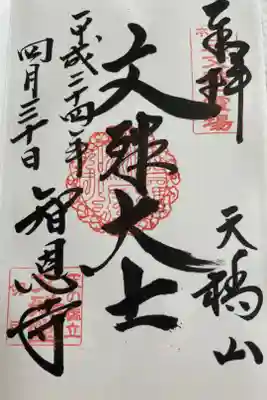 奉拝
天橋山
文殊大士
平成二十四年
四月三十日
智恩寺